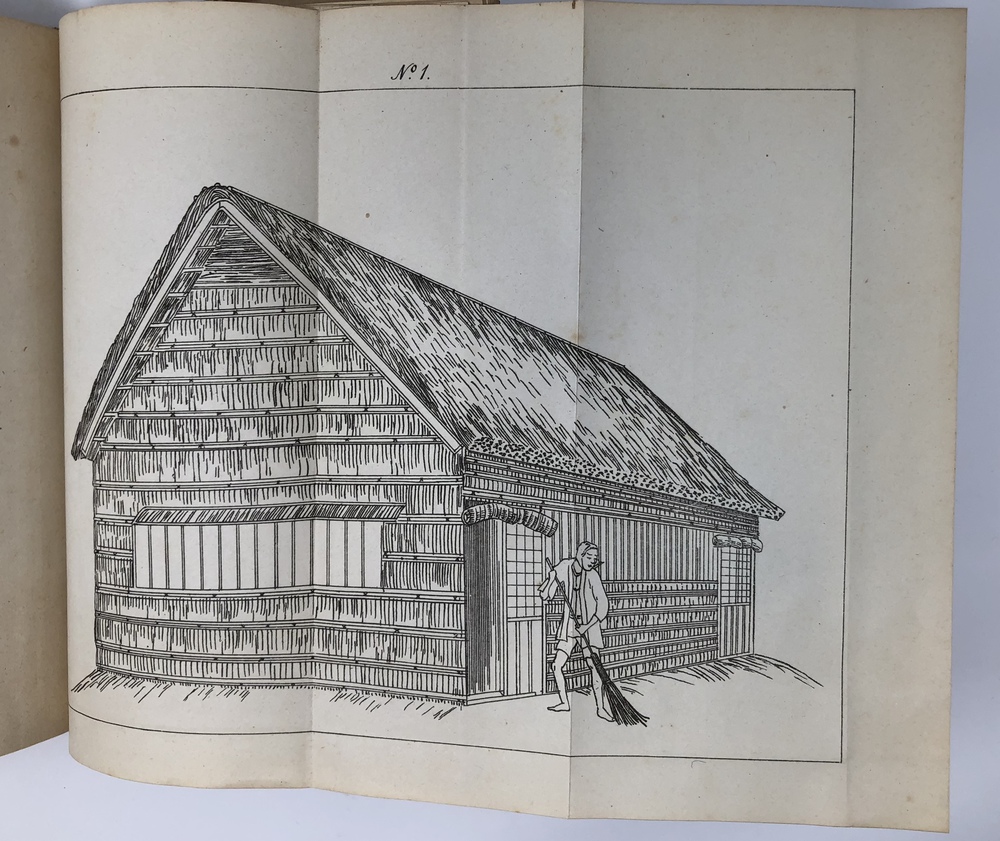 No 1.